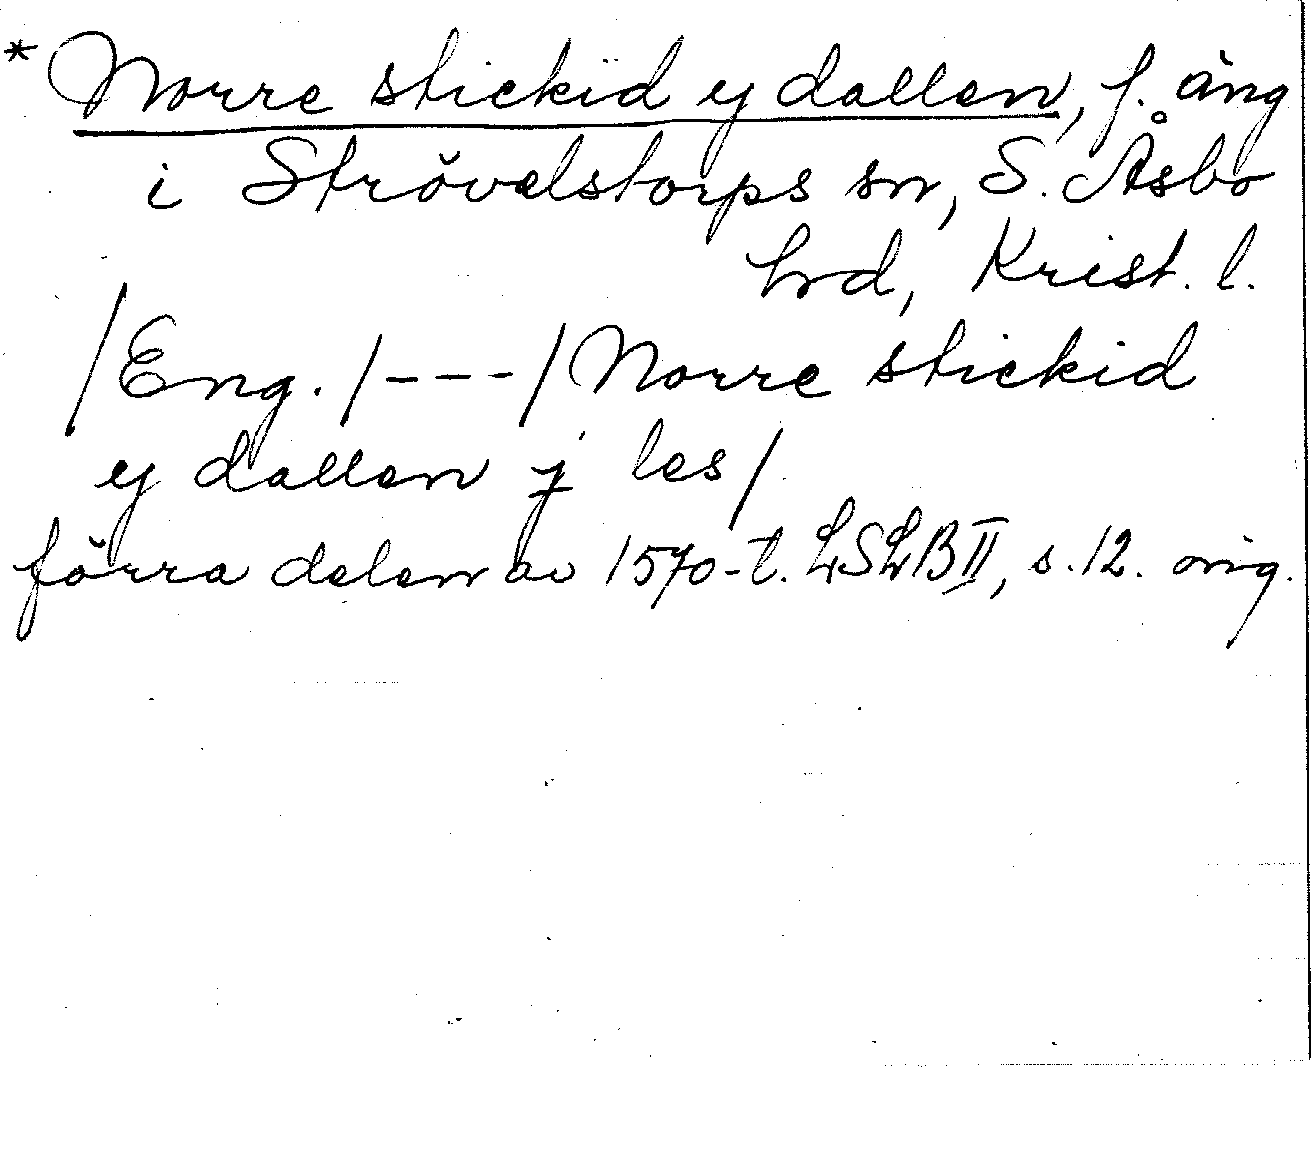 * Norre stickid ey dallen, f. äng
i Strövelstorps sn, S. Åsbo
hrd, Krist. l.
/Eng./---/Norre stickid
ey dallen j les/
förra delen av 1570-t. LSLB II, s. 12. orig.